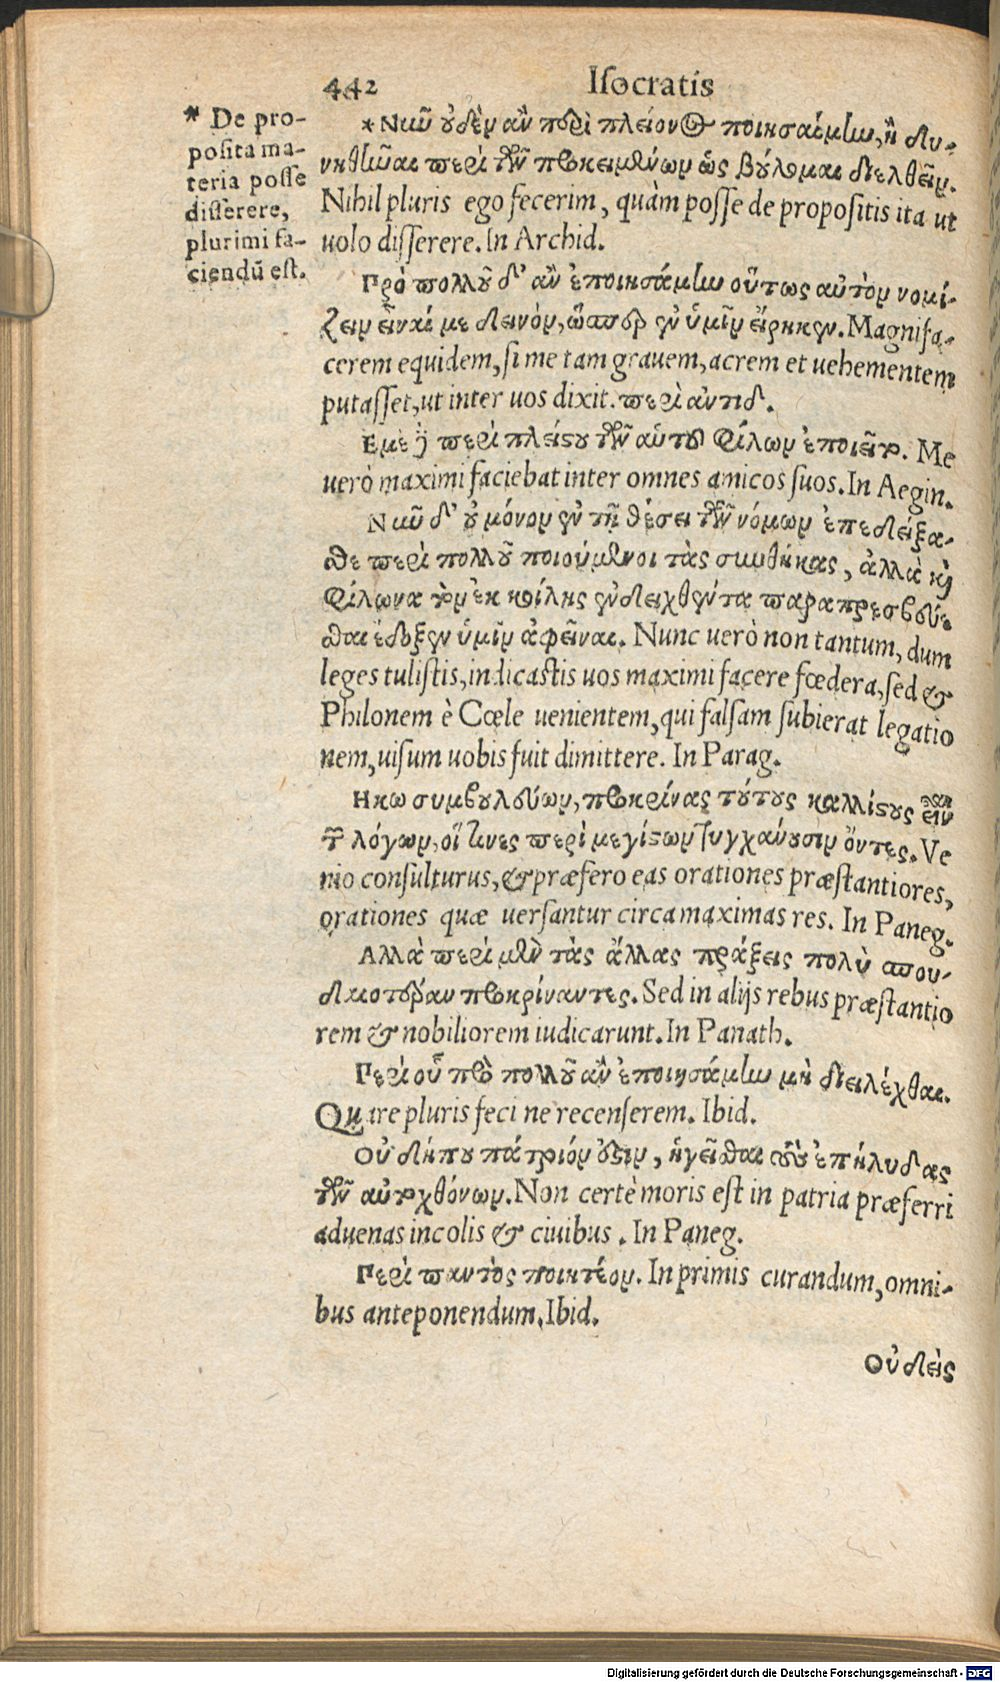 442
Iſocratis
* De pro-
poſita ma-
teria poſſe
diſſerere,
plurimi fa-
ciendū eſt.
*Νιῦ ὀδὲν ἂν περὶ πλείονος ποιησαίμην, ἢ δυ-
νηθῆναι περὶ τῶν προκειμένων ὡς βούλομαι διελθεῖν.
Nihil pluris ego fecerim, quàm poſſe de propoſitis ita ut
uolo diſſerere. In Archid.
Πρὸ πολλοῦ δ' ἂν ἐποιησάμην οὕτως αὐτὸν νομί-
ζειν εἶναί με δεινὸν, ὥσπερ ἐν ὑμῖν εἴρηκεν. Magnifa-
cerem equidem, ſi me tam grauem, acrem et uehementem
putaſſet, ut inter uos dixit. περὶ ἀντιδ.
Εμὲ δὲ περὶ πλείστου τῶν αὑτοῦ φίλων ἐποιεῖτο. Me
uerò maximi faciebat inter omnes amicos ſuos. In Aegin.
Νῦν δ' οὐ μόνον ἐν τῇ θέσει τῶν νόμων ἐπεδείξα-
σθε περὶ πολλοῦ ποιούμενοι τὰς συνθήκας, ἀλλὰ καὶ
Φίλωνα τὸν ἐκ κοίλης ἐνδειχθέντα παραπρεσβεύε
σθαι ἔδοξεν ὑμῖν ἀφεῖναι. Nunc uerò non tantum, dum
leges tuliſtis, indicaſtis uos maximi facere fœdera, ſed &
Philonem è Cœle uenientem, qui falſam ſubierat legatio
nem, uiſum uobis fuit dimittere. In Parag.
Ηκω συμβουλεύων, προκρίνας τούτους καλλίστους εἶναι
τῶν λόγων, οἵτινες περὶ μεγίστων τυγχάνουσιν ὄντες. Ve
nio conſulturus, & præfero eas orationes præſtantiores,
orationes quæ uerſantur circa maximas res. In Paneg.
Αλλὰ περὶ μὲν τὰς ἄλλας πράξεις πολὺ σπου-
δαιοτέραν προκρίναντες. Sed in alijs rebus præſtantio
rem & nobiliorem iudicarunt. In Panath.
Περὶ οὗ πρὸ πολλοῦ ἂν ἐποιησάμην μὴ διειλέχθαι.
Quare pluris feci ne recenſerem. Ibid.
Οὐ δήπου πάτριόν ἐστιν, ἡγεῖσθαι τοὺς ἐπήλυδας
τῶν αὐτοχθόνων. Non certè moris eſt in patria præferri
aduenas incolis & ciuibus. In Paneg.
Περὶ παντὸς ποιητέον. In primis curandum, omni-
bus anteponendum. Ibid.
Οὐδεὶς
Digitalisierung gefördert durch die Deutsche Forschungsgemeinschaft - DFG